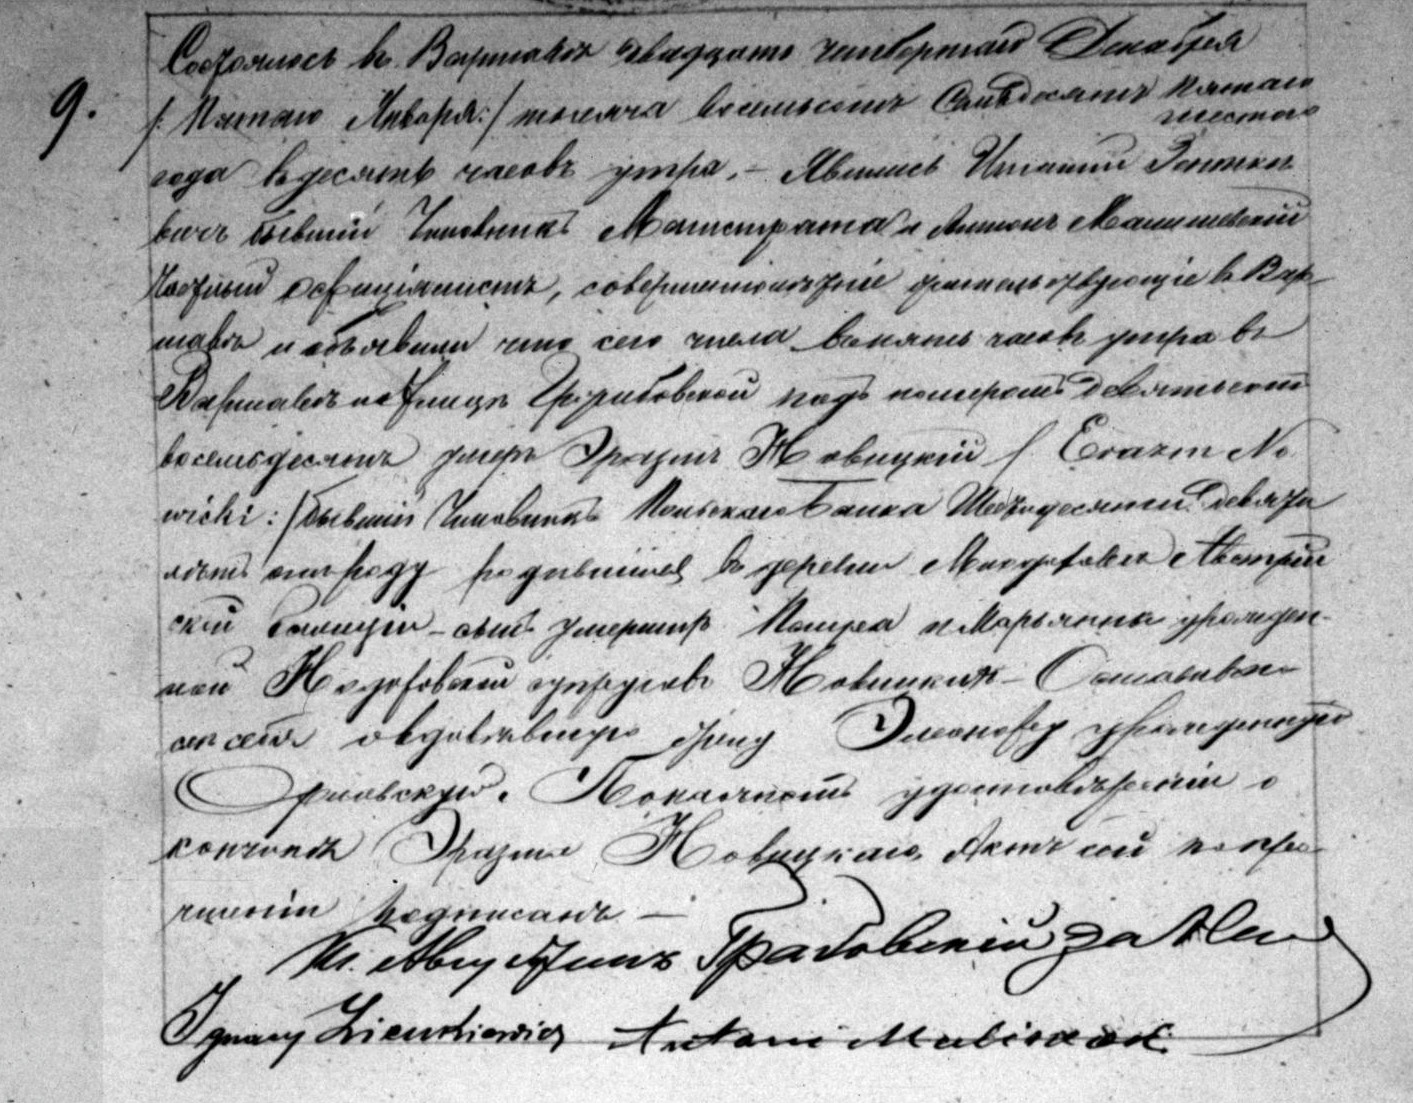 9.
Состоялось въ Варшавѣ двадцать четвертаго Декабря
/: Пятаго Января :/ тысяча восемьсотъ Семьдесятъ пятаго
шестого
года въ десять часовъ утра. – Явились Игнатій
вичъ бывшій Чиновникъ Магистрата и Антонъ
Частный оффиціялистъ, совершеннолѣтніе жительствующіе въ Вар-
шавѣ и объявили что сего числа въ пять часовъ утра въ
Варшавѣ на улицѣ Гржибовской подъ номеромъ девятьсотъ
восемьдесятъ умеръ Эразмъ Новицкій /: Erazm No
wicki :/ бывшій Чиновникъ Польскаго Банка Шестьдесятъ девять
лѣтъ отъ роду родившійся въ деревни Австрій
ской Галиціи – сынъ умершихъ и Марьянны урожден-
ной супруговъ Новицкихъ – Оставивъ по
слѣ себя овдовѣвшую жену Элеонору урожденную
Орловскую. По настоящемъ удостовѣреніи о
кончинѣ Эразма Новицкаго, Актъ сей по про
чтеніи подписанъ –
Кс. Августинъ Грабовскій за
Ignacy Zienkiewicz Antoni